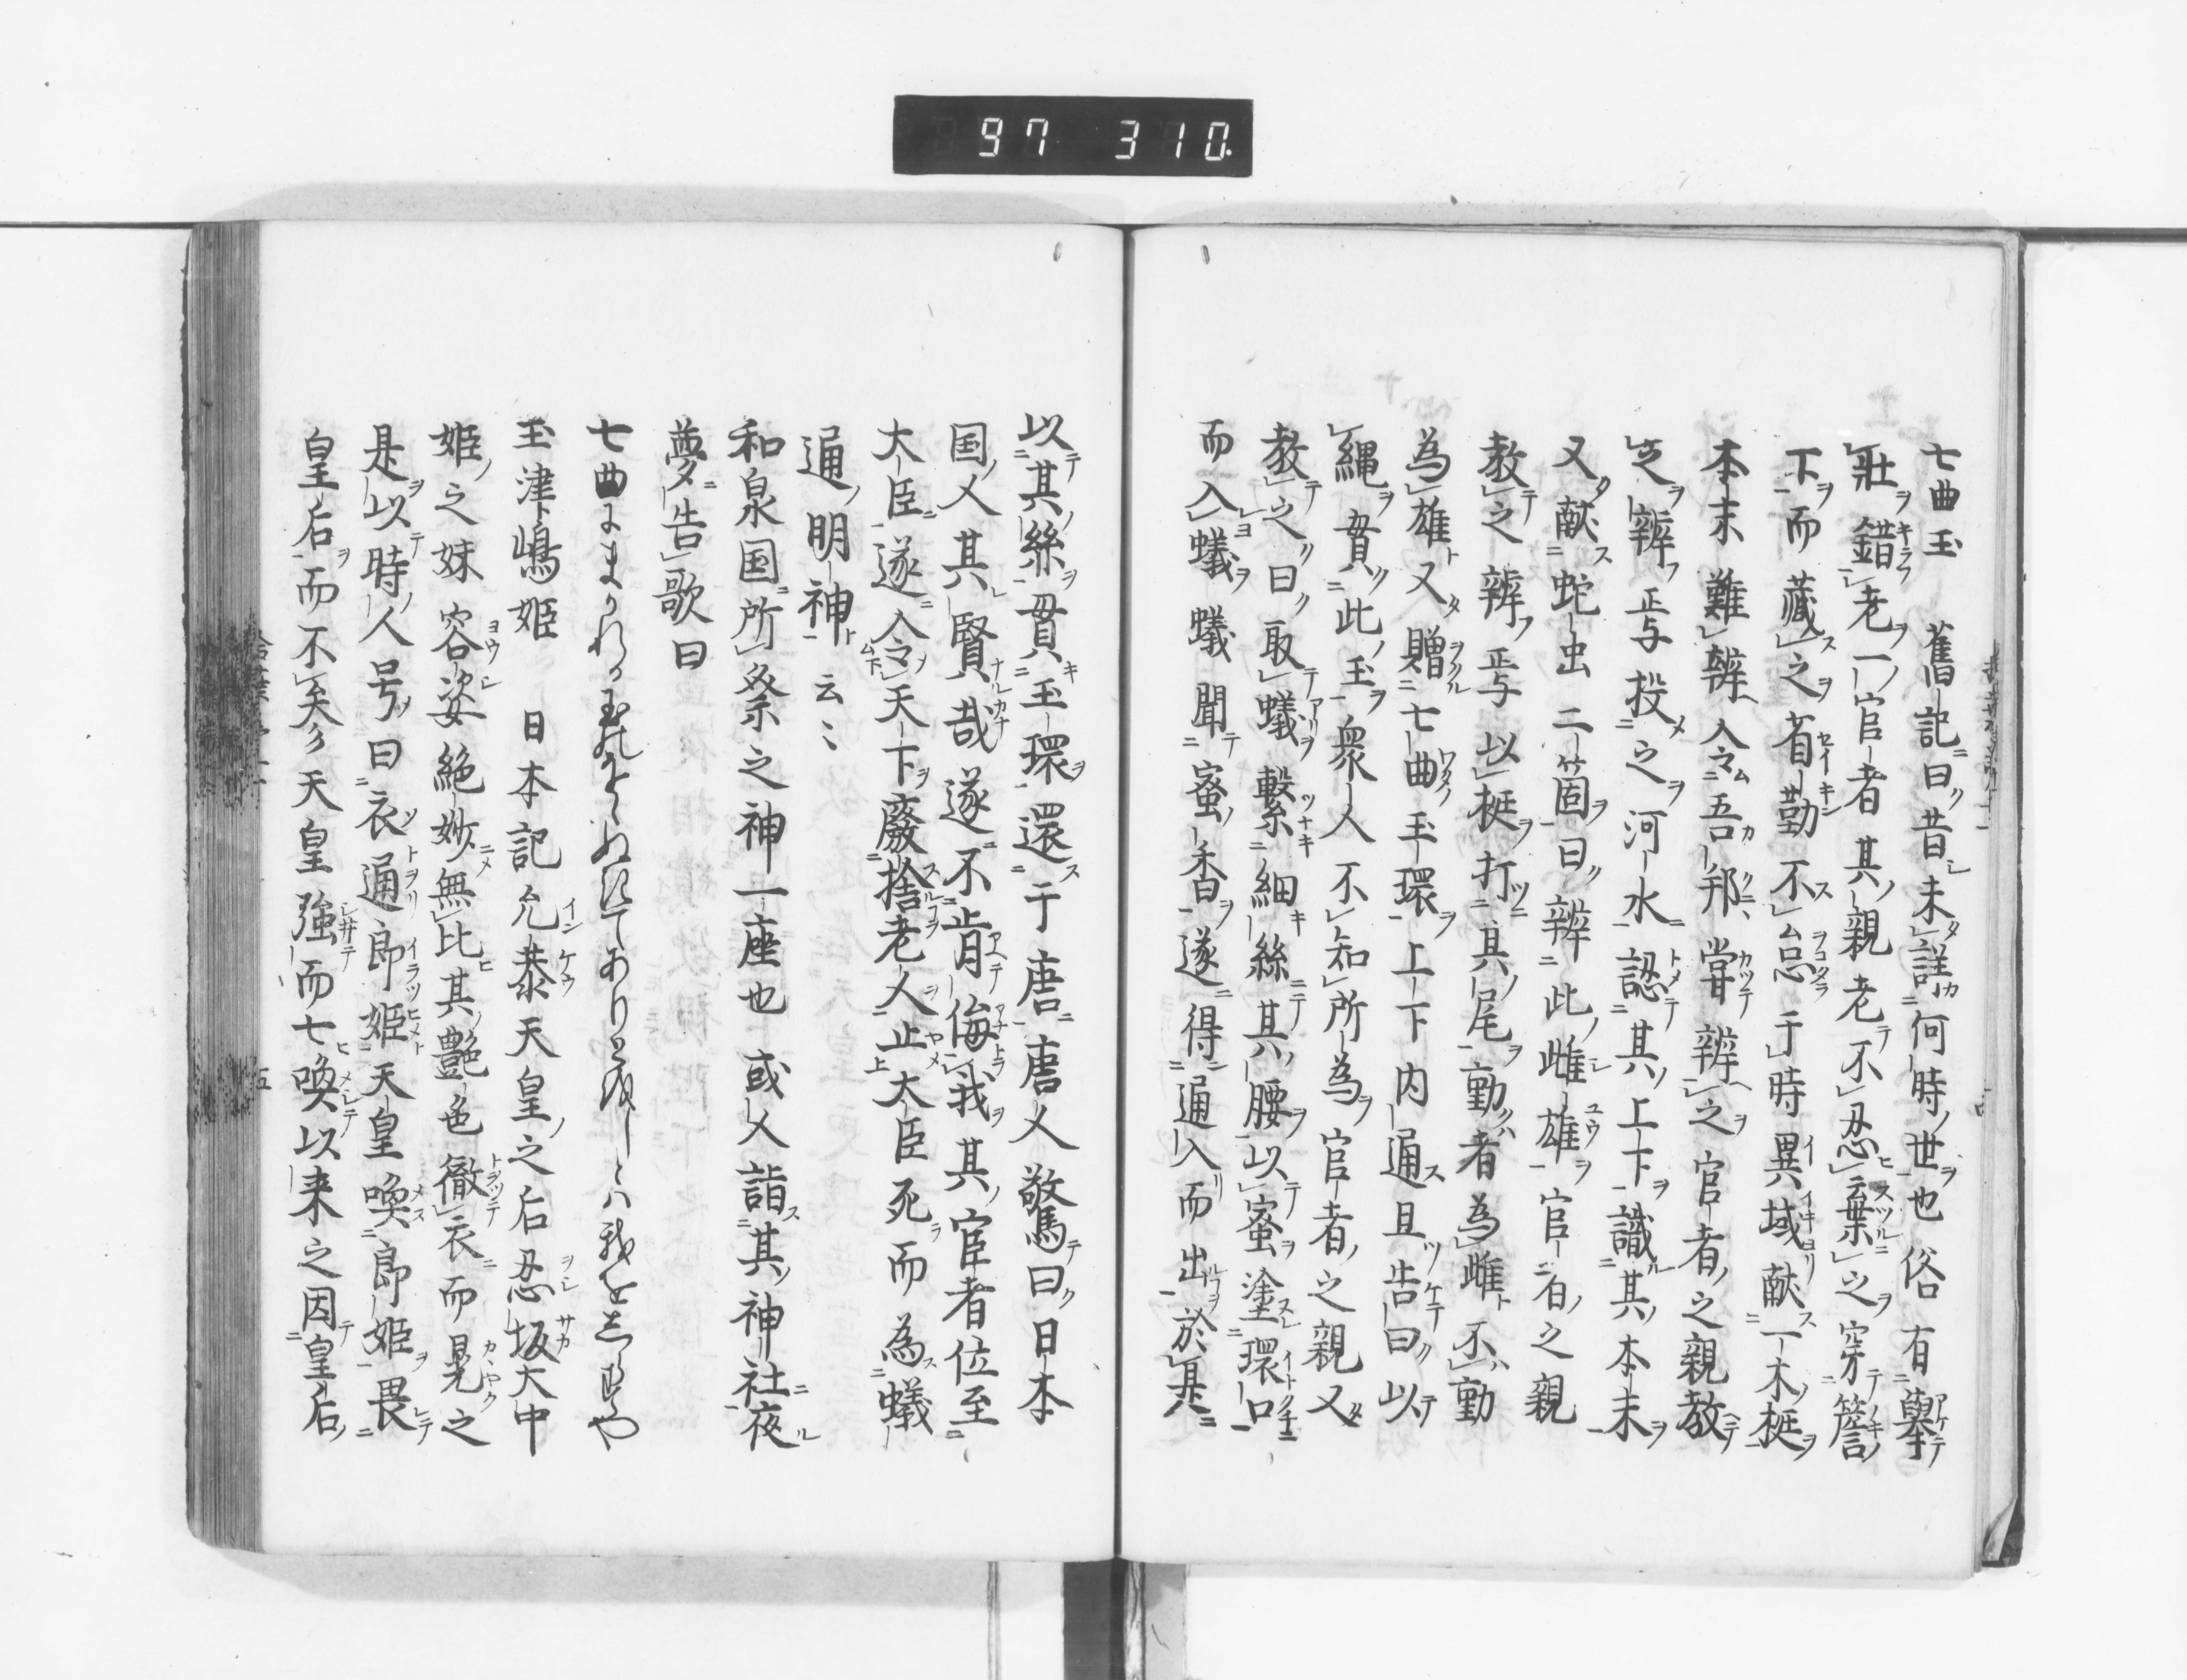 97 310
七曲玉 舊記曰昔未詳何時世也俗有擧
壯錯老一官者其親老不忍棄之穿簷
下而藏之省勤不怠于時異域献一木挺
本末難辨入令吾邦甞辨之官者之親教
之辨与投之河水認其上下識其本末
又献蛇出二箇曰辨此雌雄官者之親
教之辨与以挺打其尾動者為雌不動
為雄又贈七曲玉環上下内通且告曰以
縄貫此玉衆人不知所為官者之親又
教之曰取蟻繫細絲其腰以蜜塗環口
而入蟻蟻聞蜜香遂得通入而出於其
以其絲貫玉環還于唐唐人驚曰日本
国人其賢哉遂不肯侮我其宦者位至
大臣遂令天下廢捨老人止大臣死而為蟻
通明神云〻
和泉国所祭之神一座也或人詣其神社夜
夢告歌曰
七曲にまかれる玉のをゝぬきてありとほしとは我をしらすや
玉津嶋姫 日本記允恭天皇之后忍坂大中
姫之妹容姿絶妙無比其艶色徹衣而晃之
是以時人号曰衣通郎姫天皇喚郎姫畏
皇后而不矣天皇強而七喚以来之因皇后